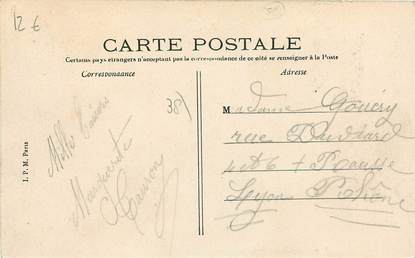 12 €
CARTE POSTALE
Certains pays étrangers n'acceptant pas la correspondance de ce côté se renseigner à la Poste
Correspondance
Adresse
38)
Madame Gouéry
rue
+ Rousse
Lyon Rhône
Mille baisers
Marguerite
I. P. M. Paris